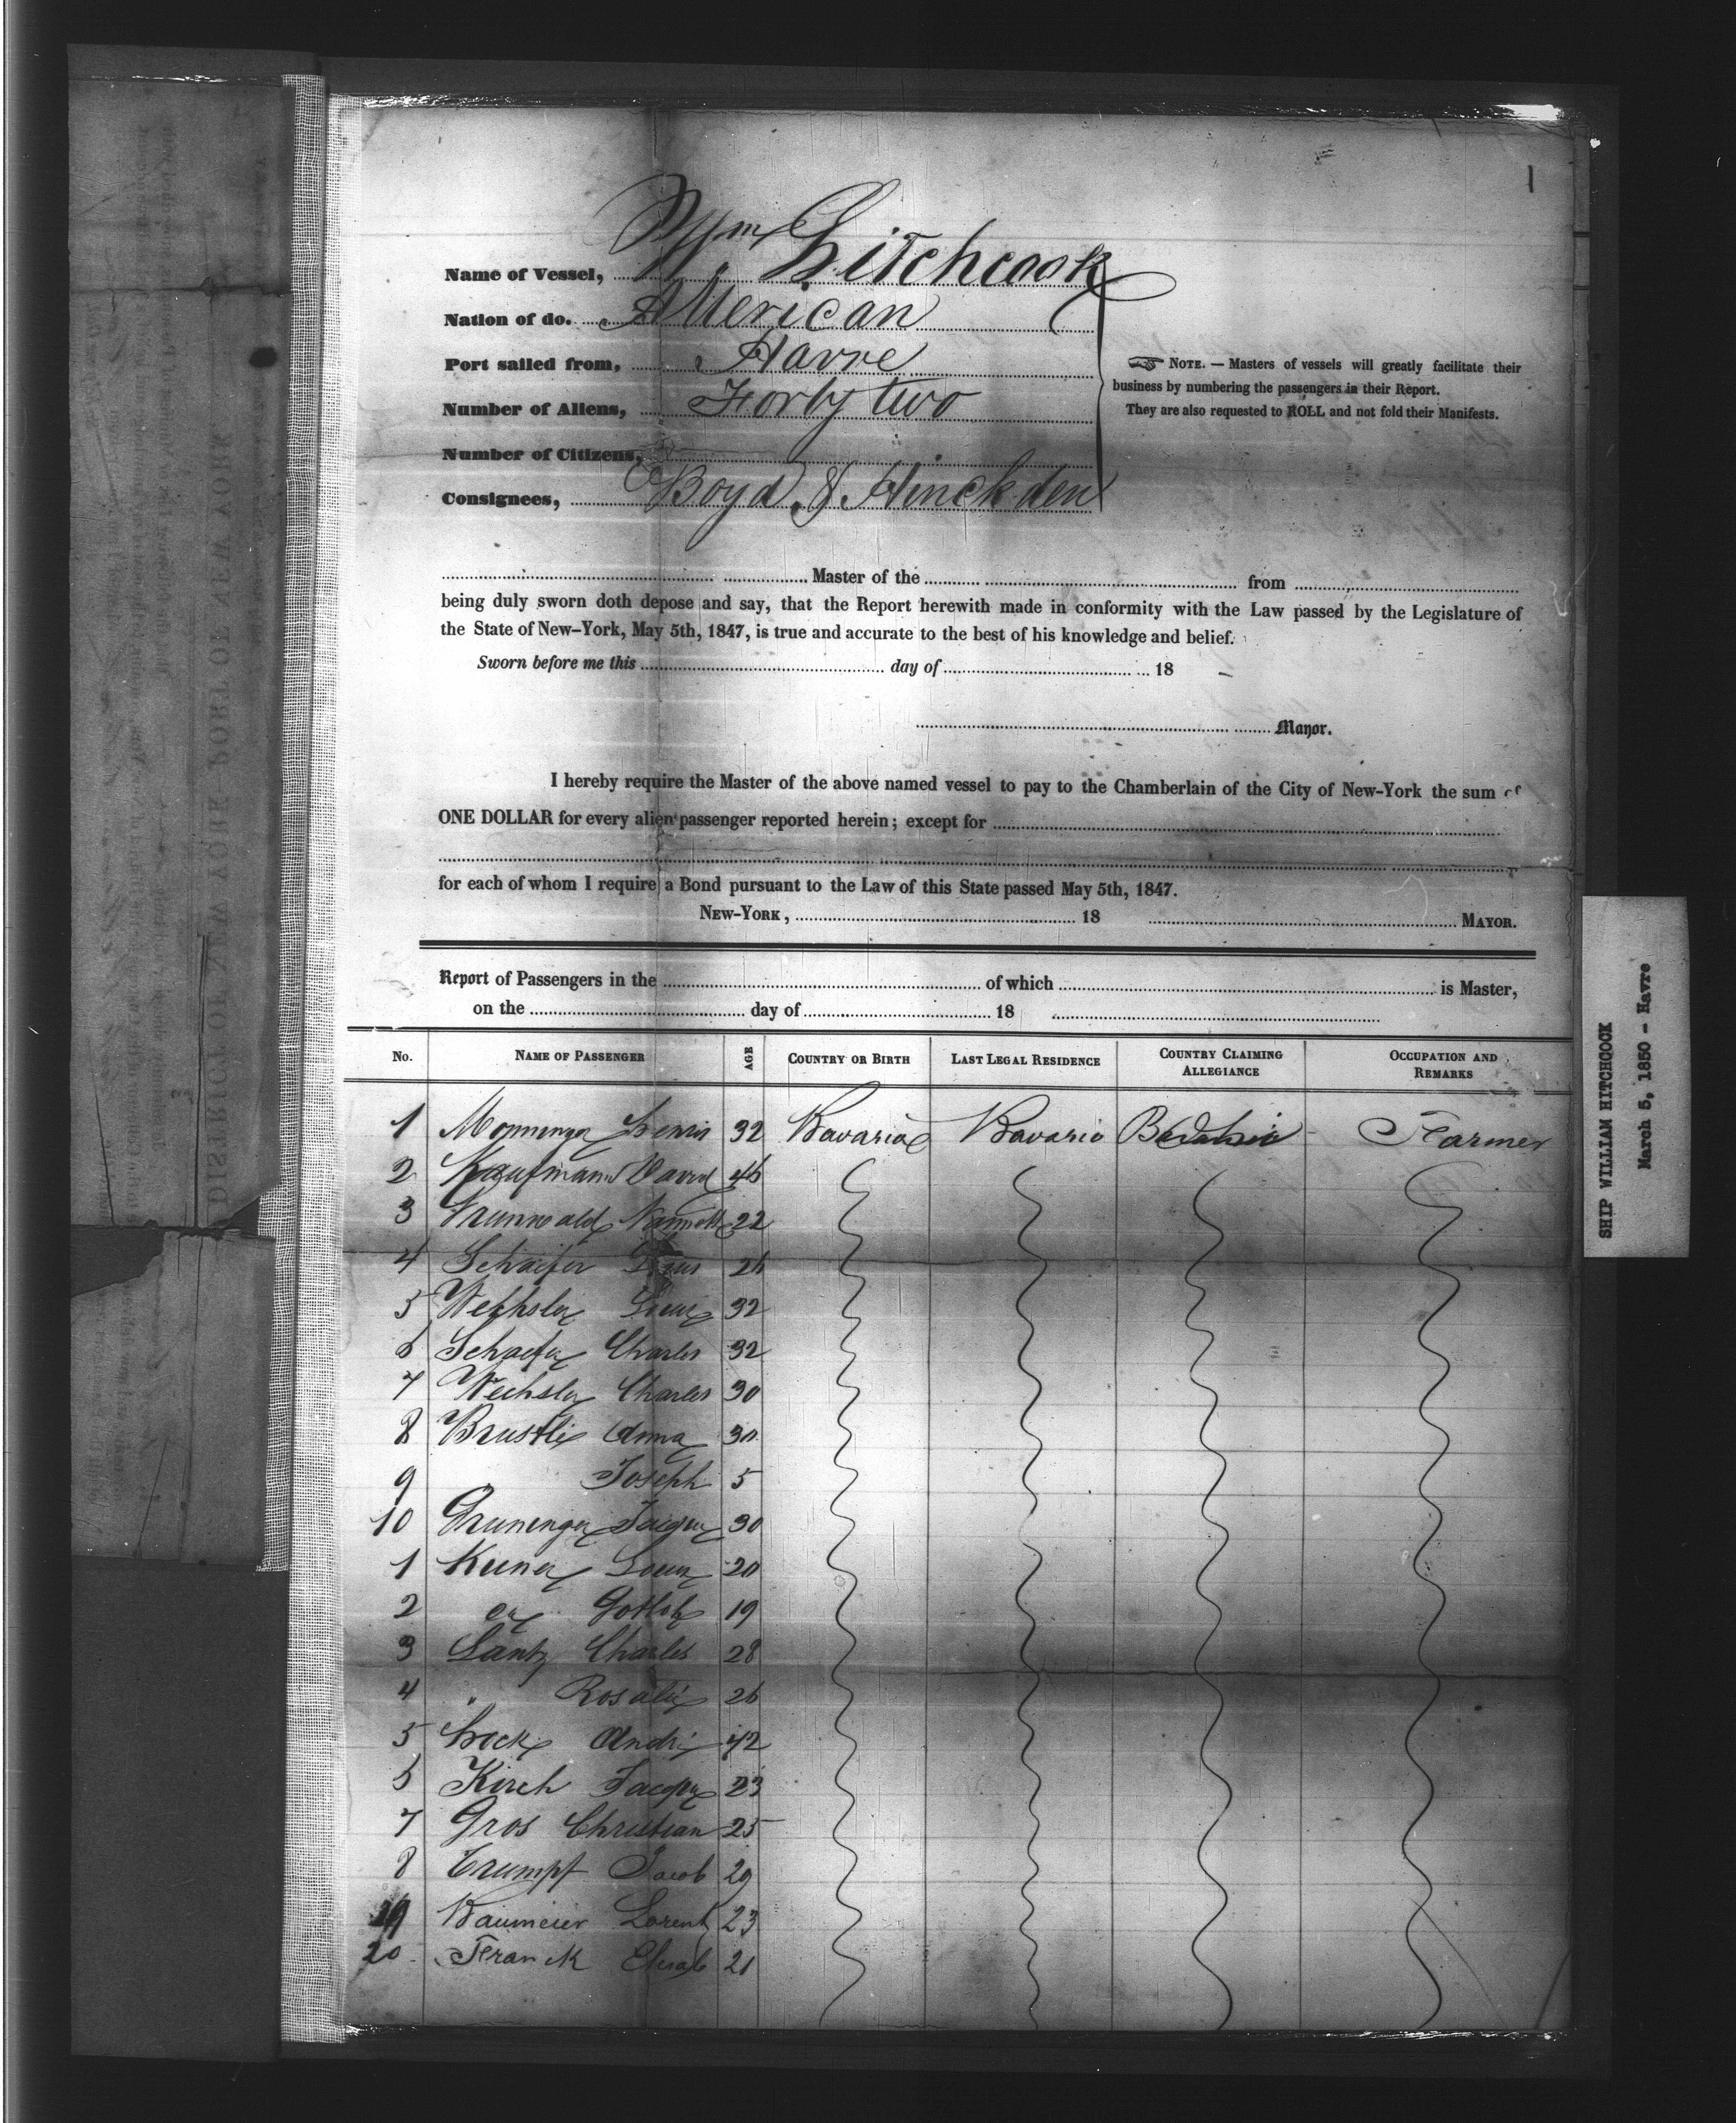 1
Wm Hitchcook
Name of Vessel,
Nation of do. American
Port sailed from, Havre
Number of Aliens, Forty two
Number of Citizens,
Consignees, Boyd & Hinckden
NOTE. — Masters of vessels will greatly facilitate their
business by numbering the passengers in their Report.
They are also requested to ROLL and not fold their Manifests.
Master of the from
being duly sworn doth depose and say, that the Report herewith made in conformity with the Law passed by the Legislature of
the State of New-York, May 5th, 1847, is true and accurate to the best of his knowledge and belief.
Sworn before me this day of 18
Mayor.
I hereby require the Master of the above named vessel to pay to the Chamberlain of the City of New-York the sum of
ONE DOLLAR for every alien passenger reported herein; except for
for each of whom I require a Bond pursuant to the Law of this State passed May 5th, 1847.
NEW-YORK, 18 MAYOR.
Report of Passengers in the of which is Master,
on the day of 18
No. NAME OF PASSENGER AGE COUNTRY OR BIRTH LAST LEGAL RESIDENCE COUNTRY CLAIMING ALLEGIANCE OCCUPATION AND REMARKS
1 Henri 32 Bavaria Bavaria Farmer
2 Kaufmann David
3 22
4 Schaefer 26
5 Wechsler Louis 32
6 Schaefer Charles 32
7 Wechsler Charles 30
8 Brustlie Anna 30
9 Joseph 5
10 Gruninger Jacques 30
1 Louis 20
2 Gotlob 19
3 Lantz Charles 28
4 " Rosalie 26
5 Hock André 42
6 Kirch Jacques 23
7 Gros Christian 25
8 Trumpf Jacob 29
19 Baumeier Lorent 23
20 Franck Elisab 21
SHIP WILLIAM HITCHCOCK
March 5, 1850 - Havre